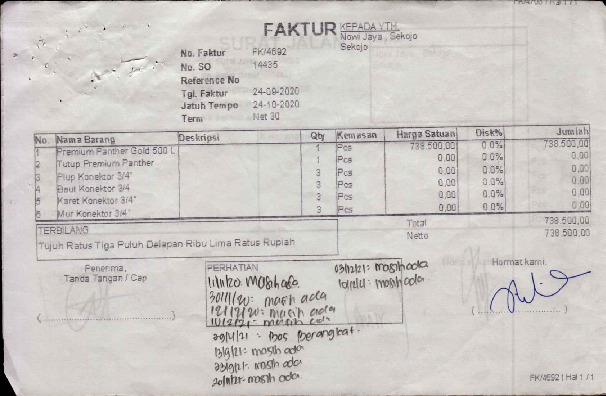 FAKTUR
KEPADA YTH.
Nowi Jaya, Sekojo
Sekojo
No. Faktur FK/4692
No. SO 14435
Reference No
Tgl. Faktur 24-09-2020
Jatuh Tempo 24-10-2020
Term Net 30
No. Nama Barang Deskripsi Qty Kemasan Harga Satuan Disk% Jumlah
1 Premium Panther Gold 500 L 1 Pcs 738.500,00 0.0% 738.500,00
2 Tutup Premium Panther 1 Pcs 0,00 0.0% 0,00
3 Plup Konektor 3/4" 3 Pcs 0,00 0.0% 0,00
4 Baut Konektor 3/4 3 Pcs 0,00 0.0% 0,00
5 Karet Konektor 3/4" 3 Pcs 0,00 0.0% 0,00
6 Mur Konektor 3/4" 3 Pcs 0,00 0.0% 0,00
TERBILANG
Tujuh Ratus Tiga Puluh Delapan Ribu Lima Ratus Rupiah
Total 738.500,00
Netto 738.500,00
Penerima,
Tanda Tangan / Cap
PERHATIAN
masih ada
30/11/20: masih ada
12/12/20: masih ada
masih ada
29/4/21: Bos Berangkat.
13/9/21: masih ada
23/9/21: masih ada
masih ada
03/12/21: masih ada
masih ada
Hormat kami,
FK/4692 | Hal 1 / 1